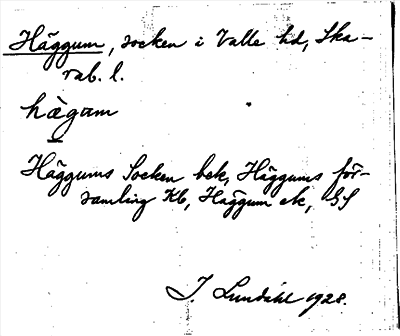 Häggum, socken i Valle hd, Ska-
rab. l.
hàgum
Häggums Socken bek, Häggums för-
samling Kb, Häggum ek, GS
I. Lundahl 1928.